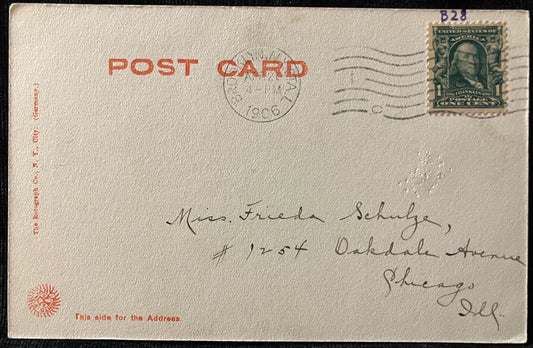 B28
UNITED STATES OF AMERICA
FRANKLIN
1 POSTAGE 1
ONE CENT
POST CARD
BROOKLYN, N.Y. STA. L
4-PM
1906
C
The Rotograph Co., N. Y., City. (Germany.)
Miss. Frieda Schulze,
# 1254 Oakdale Avenue
Chicago
Ill.
This side for the Address.